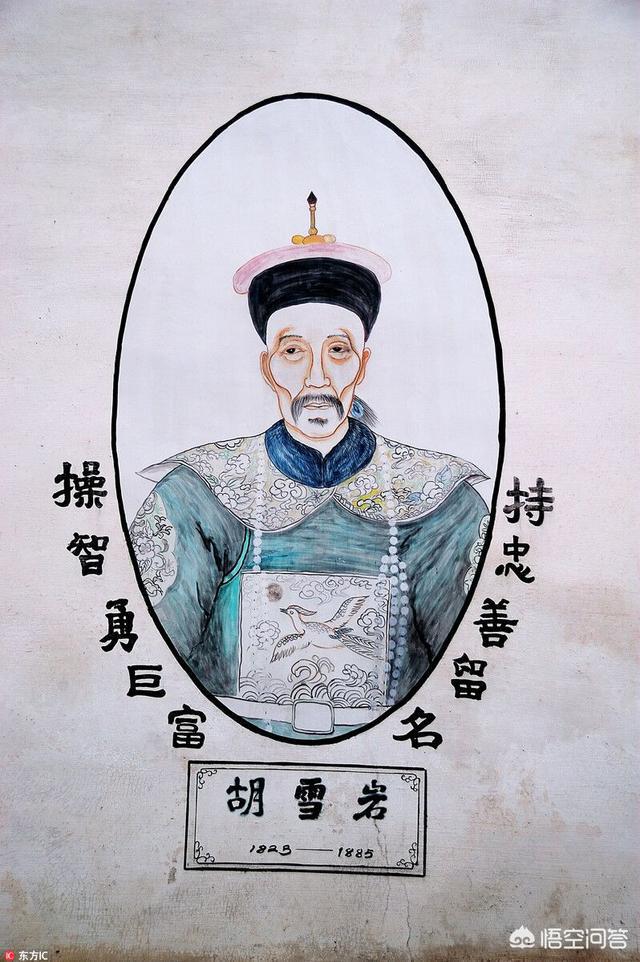 操智勇巨富
持忠善留名
胡雪岩
1823——1885
东方IC
悟空问答